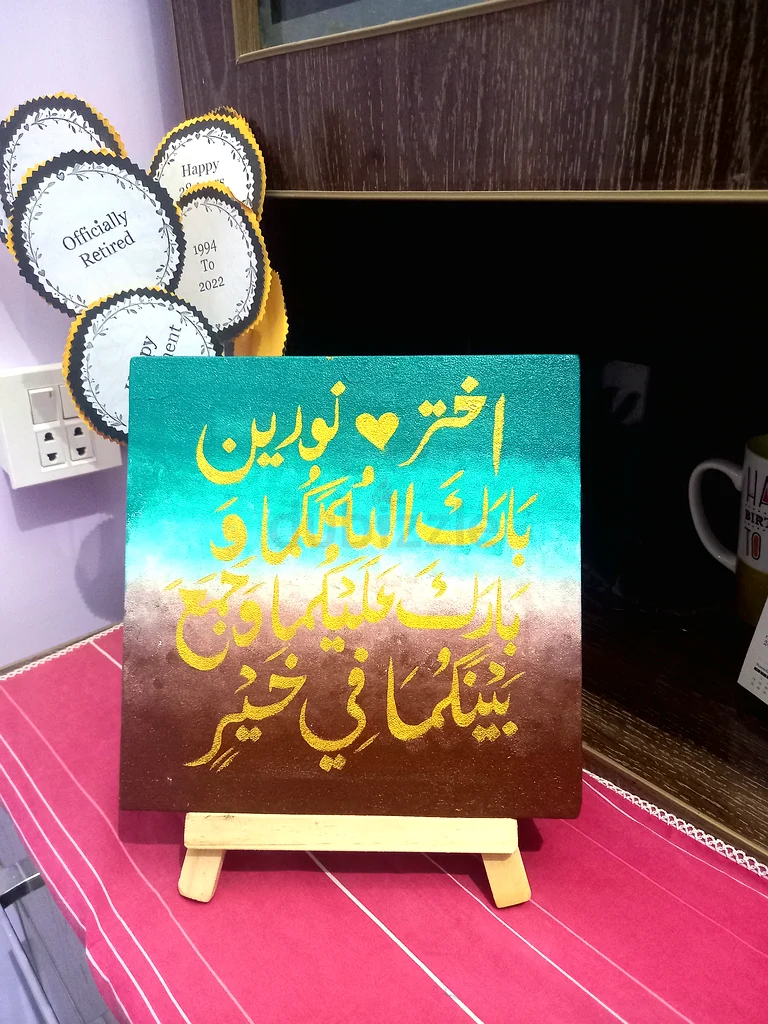 Happy
Officially
Retired
1994
To
2022
اختر ♥ نورین
بَارَكَ اللهُ لَكُمَا وَ
بَارَكَ عَلَيْكُمَا وَجَمَعَ
بَيْنَكُمَا فِي خَيْرٍ
dubizzle
TO